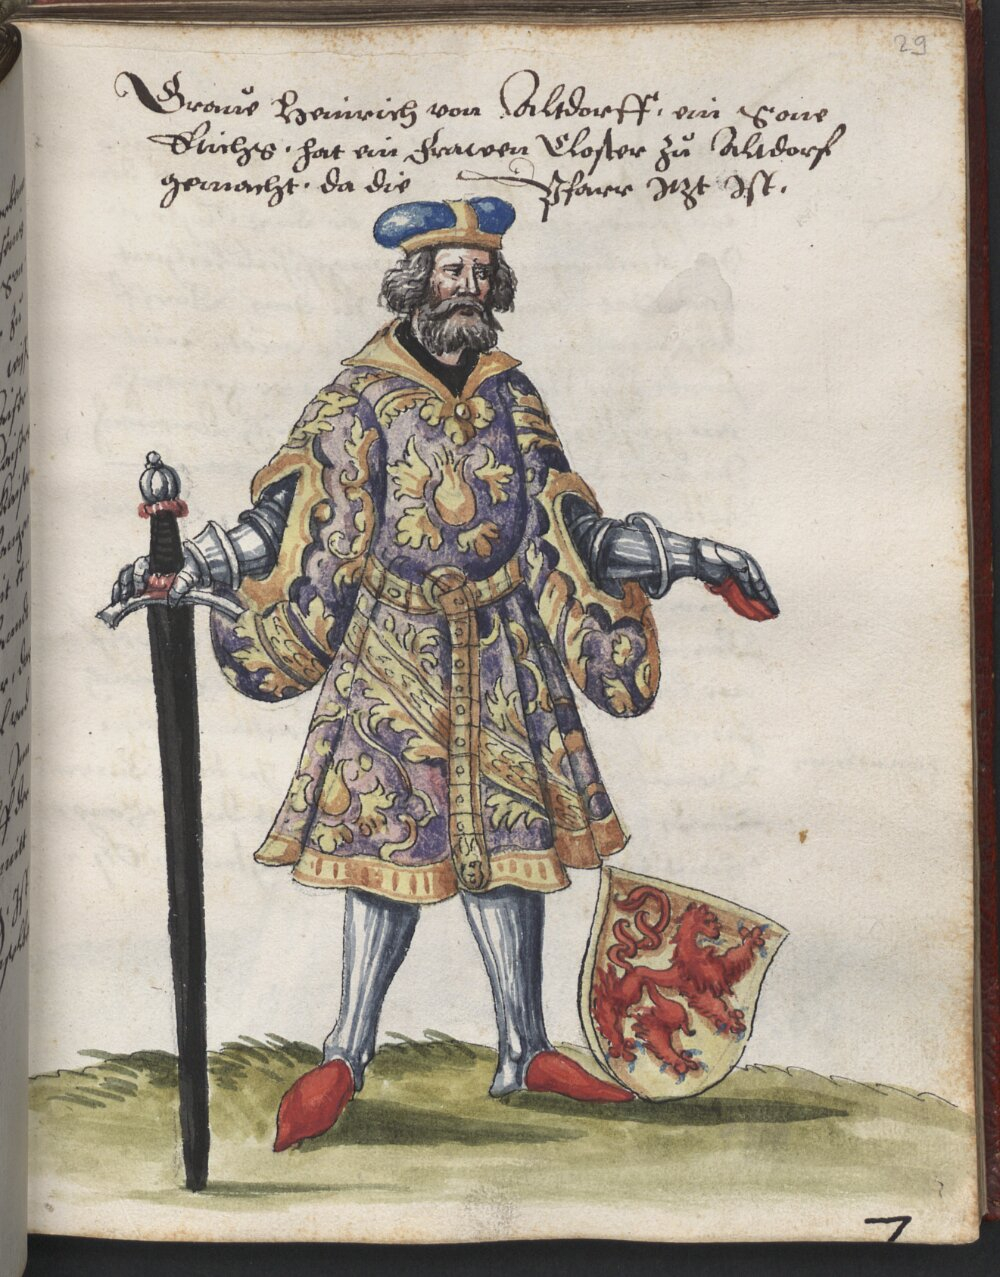 29
Graue Heinrich von Altdorff, ein Sone
hat ein frawen Closter zů Altdorf
gemacht, da die Pfarr itzt Ist.
7